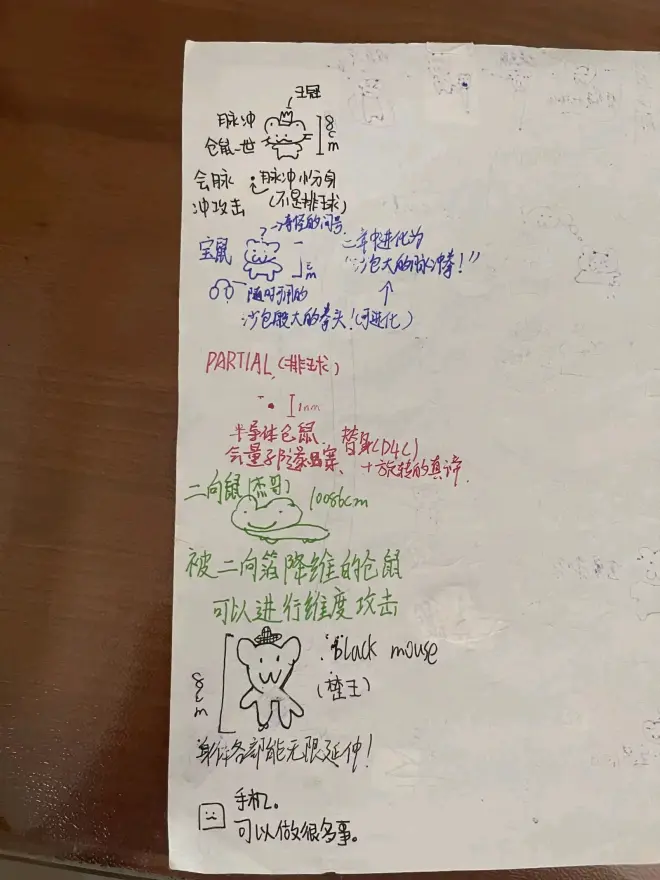 王冠
脉冲
仓鼠一世
8cm
会脉
冲攻击
脉冲小分身
(不是排球)
?→清怪的问号
宝鼠
cm
随时可用的
沙包般大的拳头!(可进化)
二年中进化为
"沙包大的脉冲拳!"
PARTIAL (排球)
1nm
半导体仓鼠、替身(D4C)
会量子隧道、+旋转的真谛
二向鼠(杰哥) 10086cm
被二向箔降维的仓鼠
可以进行维度攻击
8cm
Black mouse
(楚王)
身体各部能无限延伸!
手机。
可以做很多事。